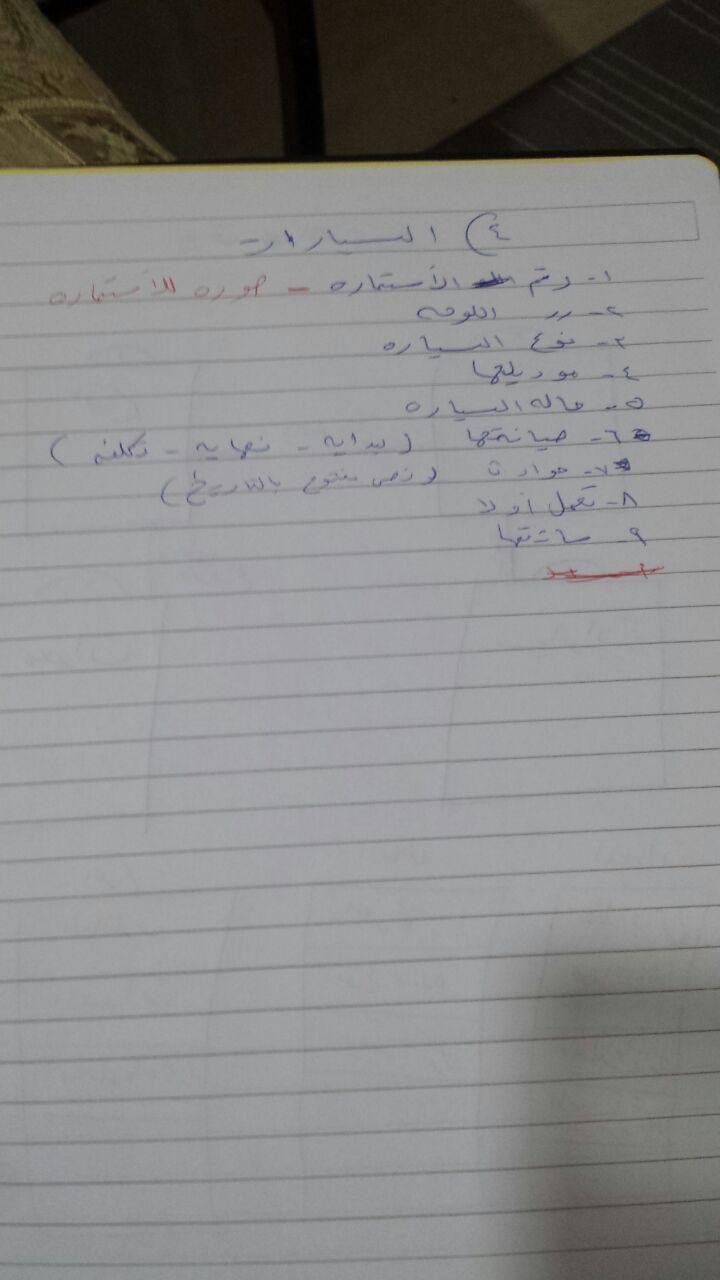 ٤) السيارات
١- رقم الأستماره - صوره للأستماره
٢- رر اللوحه
٣- نوع السياره
٤- موديلها
٥- حاله السياره
٦- صيانتها (بدايه - نهايه - تكلفه)
٧- حوادث (نص مفتوح بالتاريخ)
٨- تعمل أو لا
٩-